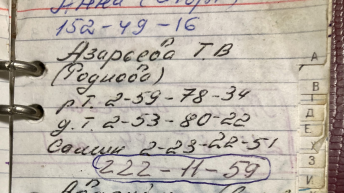 152-49-16
Азарьева Т.В
(Роднова)
р.т. 2-59-78-34
д.т. 2-53-80-22
2-23-22-51
222-11-59
А
В
Д
Е
Х
З
И